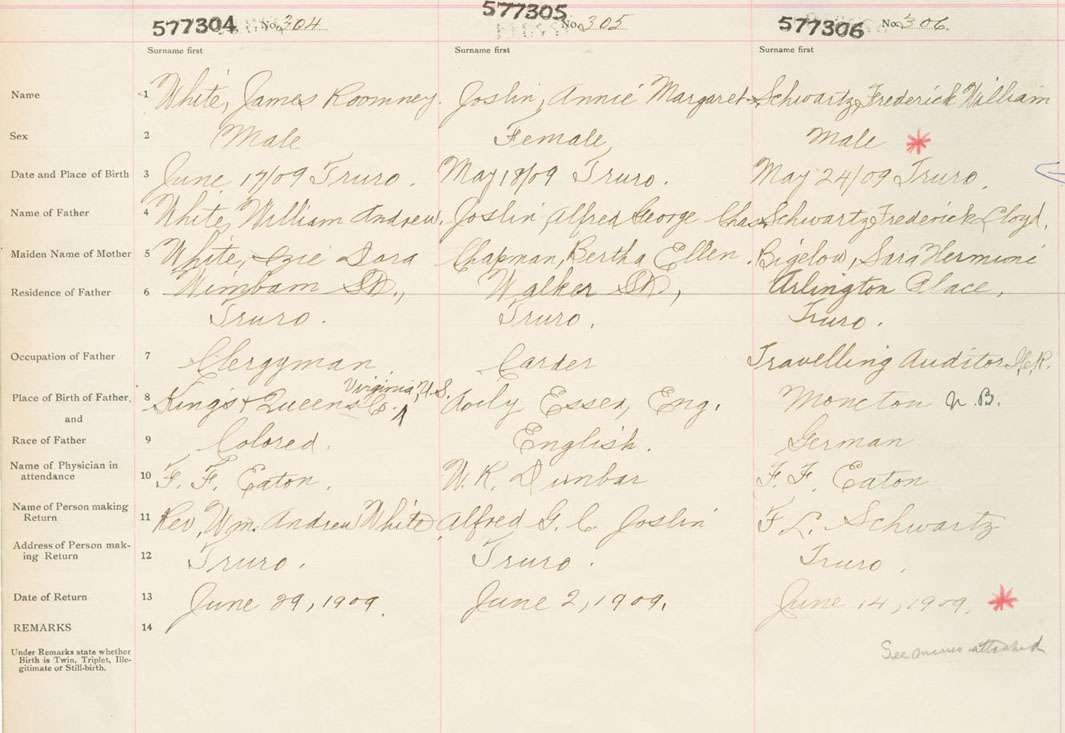 577304 No. 304
577305 No. 305
577306 No. 306
Surname first Surname first Surname first
Name 1 White, James Roomney. Joslin, Annie Margaret Schwartz, Frederick William
Sex 2 Male Female Male *
Date and Place of Birth 3 June 17/09 Truro. May 18/09 Truro. May 24/09 Truro.
Name of Father 4 White, William Andrew. Joslin Alfred George Chas Schwartz, Frederick Lloyd.
Maiden Name of Mother 5 White, Izie Dora Chapman, Bertha Ellen. Bigelow, Sara Hermini
Residence of Father 6 Wimbam St., Walker St., Arlington Place,
Truro. Truro. Truro.
Occupation of Father 7 Clergyman Carder Travelling Auditor
Virginia, U.S.
Place of Birth of Father, 8 Kings & Queens Essex, Eng. Moncton N.B.
and
Race of Father 9 Colored. English. German
Name of Physician in
attendance 10 F. F. Eaton. W. R. Dunbar F. F. Eaton
Name of Person making
Return 11 Rev. Wm. Andrew White Alfred G. C. Joslin F L. Schwartz
Address of Person mak-
ing Return 12 Truro. Truro. Truro.
Date of Return 13 June 29, 1909. June 2, 1909. June 14, 1909. *
REMARKS 14
Under Remarks state whether
Birth is Twin, Triplet, Ille-
gitimate or Still-birth.
See attached